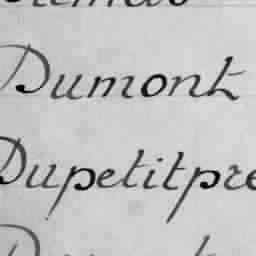 Dumont
Dupetitpre